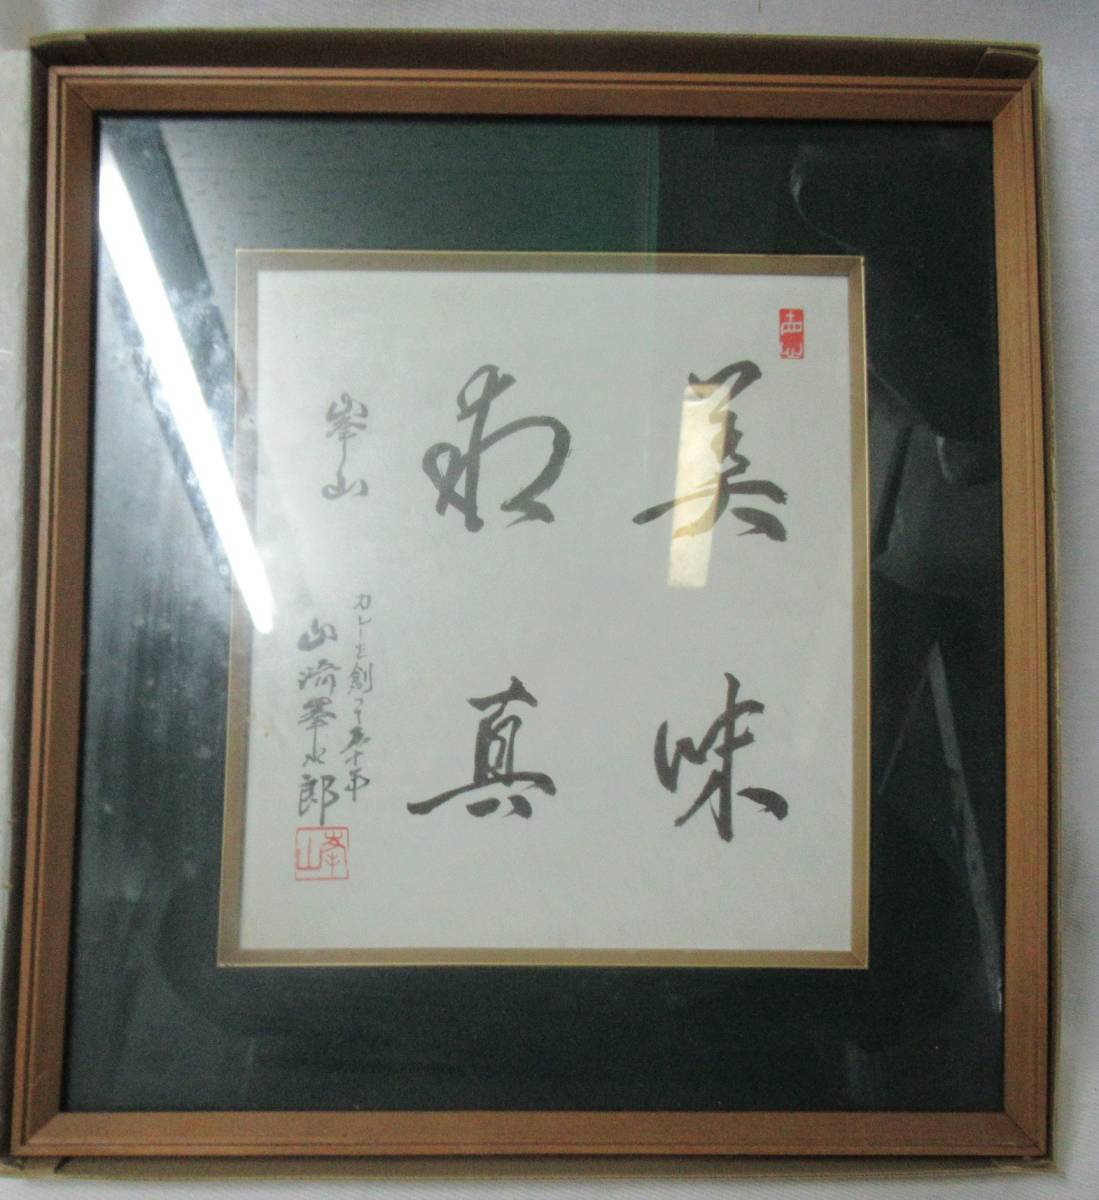 美味
求真
峯山
カレーを創って五十年
山崎峯次郎
峯山